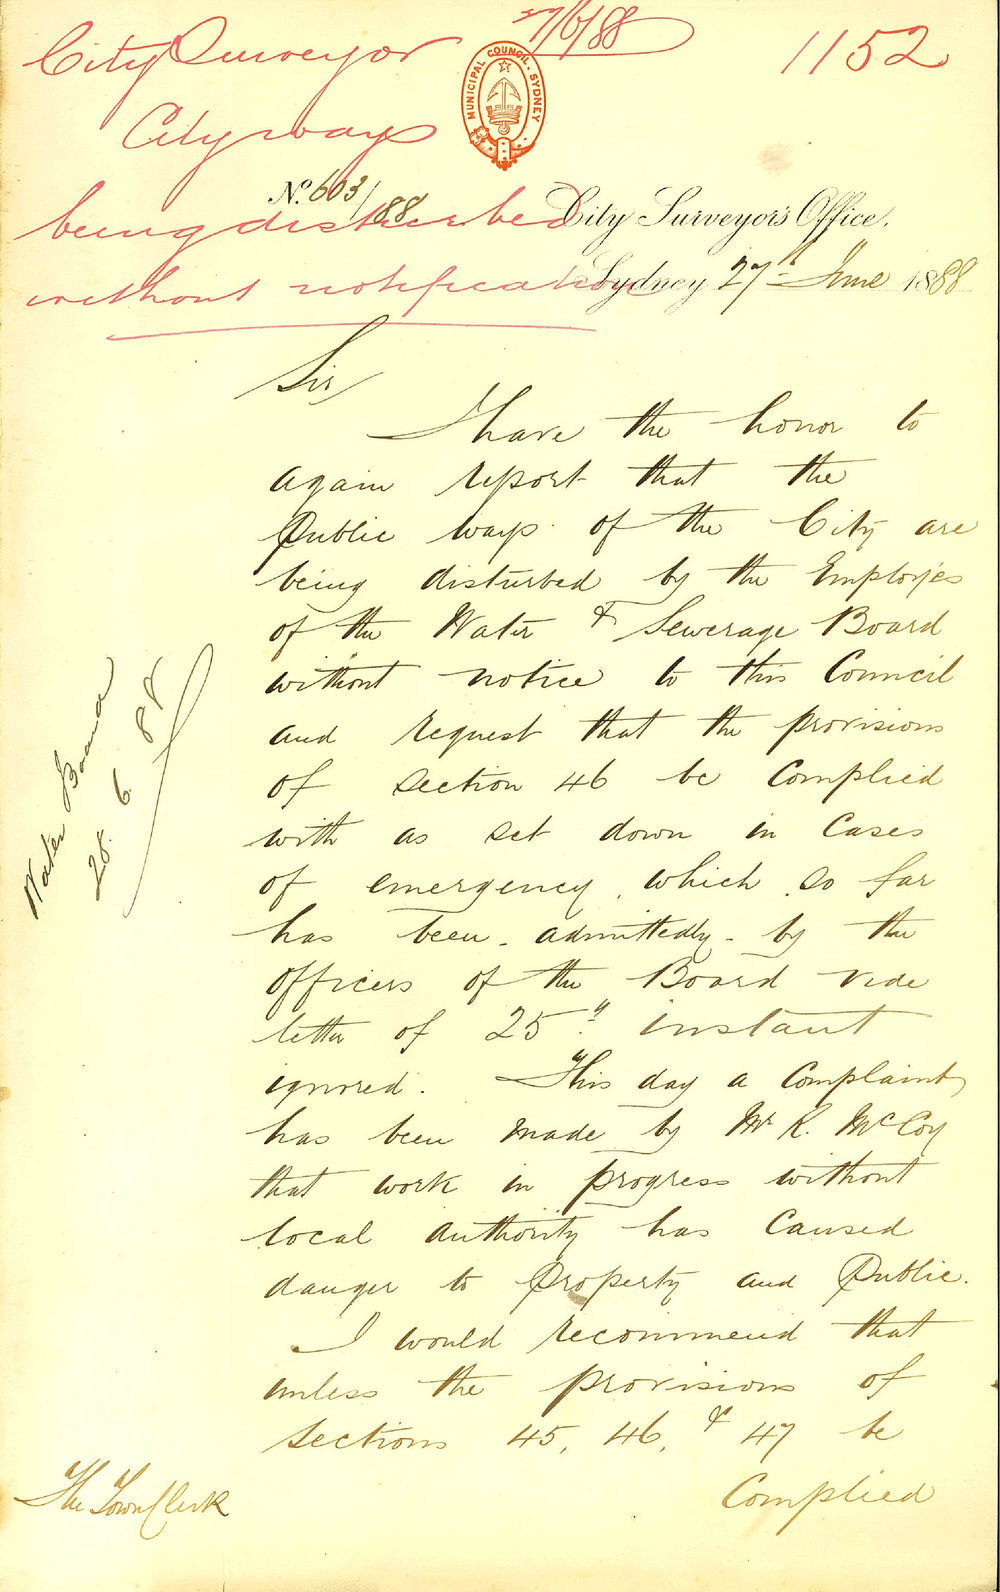 27/6/88
1152
City Surveyor
City ways
being disturbed
without notification
MUNICIPAL COUNCIL. SYDNEY
No. 603/88
City Surveyor's Office.
Sydney 27th June 1888
Sir
I have the honor to
again report that the
Public ways of the City are
being disturbed by the Employés
of the Water & Sewerage Board
without notice to this Council
and request that the provisions
of section 46 be Complied
with as set down in Cases
of emergency, which so far
has been - admittedly - by the
Officers of the Board vide
letter of 25th instant
ignored. This day a Complaint
has been made by Mr R. McCoy
that work in progress without
local authority has Caused
danger to Property and Public.
I would recommend that
unless the provisions of
Sections 45, 46, & 47 be
Complied
The Town Clerk
Water Board
28.6.88